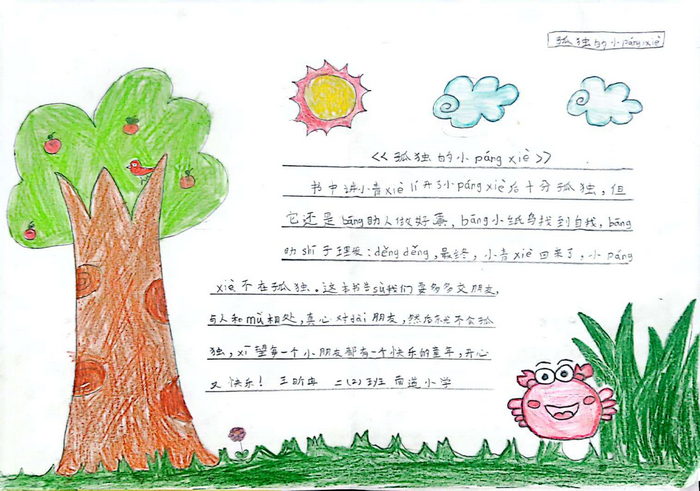 孤独的小páng xiè
<<孤独的小páng xiè>>
书中讲小青xiè lí开了小páng xiè后十分孤独,但
它还是bāng助人做好事,bāng小纸鸟找到自我,bāng
助shī子理发:děng děng,最终,小青xiè回来了,小páng
xiè不在孤独。这本书告sù我们要多多交朋友,
与人和mù相处,真心对dài朋友,然后不会孤
独,xī望每一个小朋友都有一个快乐的童年,开心
又快乐! 王昕 二(2)班 小学